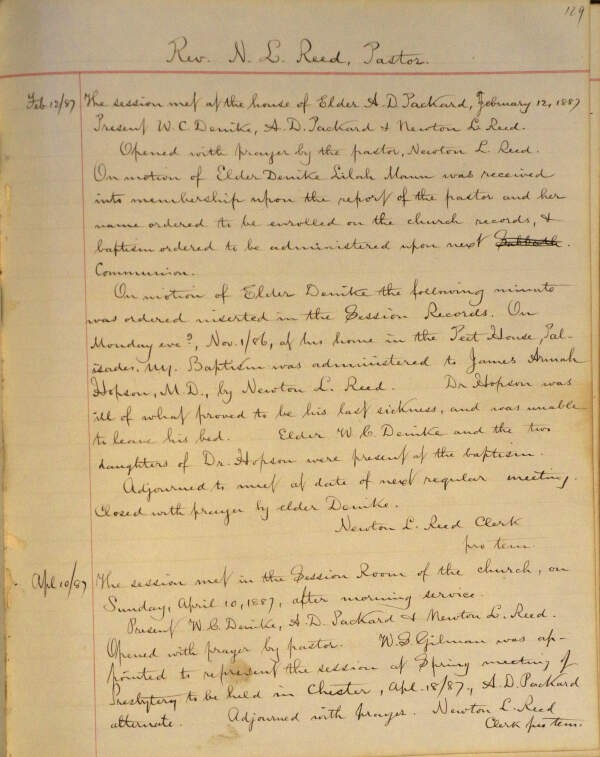 129
Rev. N. L. Reed, Pastor.
Feb. 12/87 The session met at the house of Elder A. D. Packard, February 12, 1887
Present W. C. Denike, A. D. Packard & Newton L. Reed.
Opened with prayer by the pastor, Newton L. Reed.
On motion of Elder Denike Lilah Mann was received
into membership upon the report of the pastor and her
name ordered to be enrolled on the church records, &
baptism ordered to be administered upon next Sabbath.
Communion.
On motion of Elder Denike the following minute
was ordered inserted in the Session Records. On
Monday eve?, Nov. 1/86, at his home in the Peet House, Pal-
isades, N.Y. Baptism was administered to James
Hopson, M.D., by Newton L. Reed. Dr Hopson was
ill of what proved to be his last sickness, and was unable
to leave his bed. Elder W. C. Denike and the two
daughters of Dr. Hopson were present at the baptism.
Adjourned to meet at date of next regular meeting.
Closed with prayer by elder Denike.
Newton L. Reed Clerk
pro tem.
Apl 10/87 The session met in the Session Room of the church, on
Sunday, April 10, 1887, after morning service.
Present W. C. Denike, A. D. Packard & Newton L. Reed.
Opened with prayer by pastor. W. S. Gilman was ap-
pointed to represent the session at Spring meeting of
Presbytery to be held in Chester, Apl. 18/87, A. D. Packard
alternate. Adjourned with prayer. Newton L. Reed
Clerk pro tem.